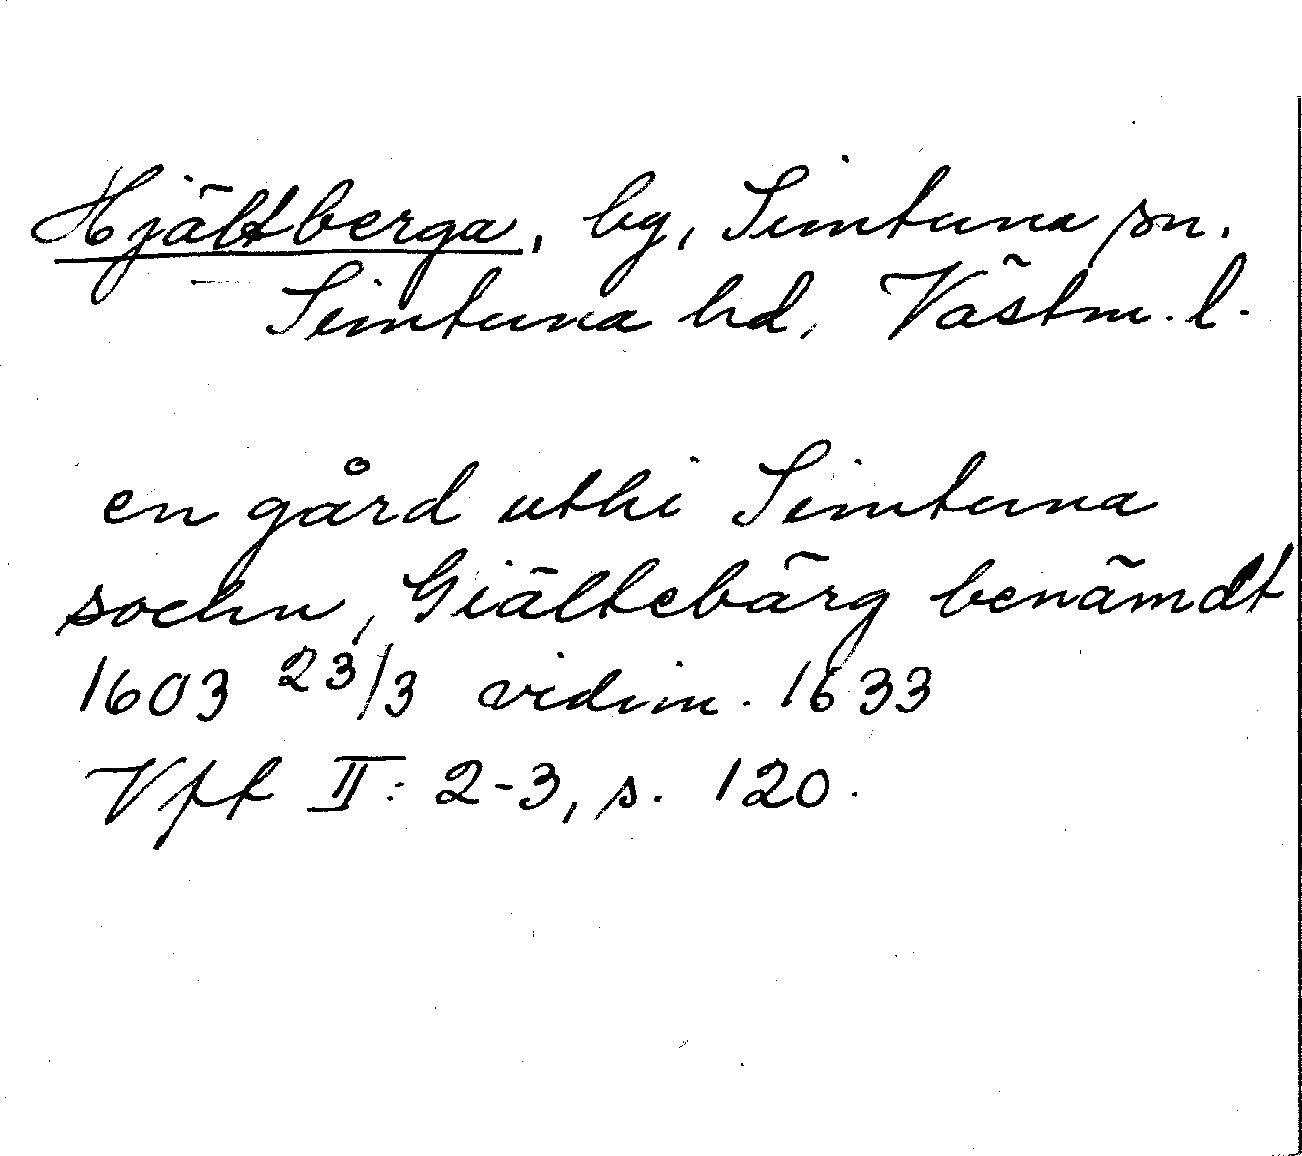 Hjältberga, by, Simtuna sn.
Simtuna hd, Västm. l.
en gård uthi Simtuna
sochn, Giältebärg benämdt
1603 23/3 vidim. 1633
Vff II: 2-3, s. 120.